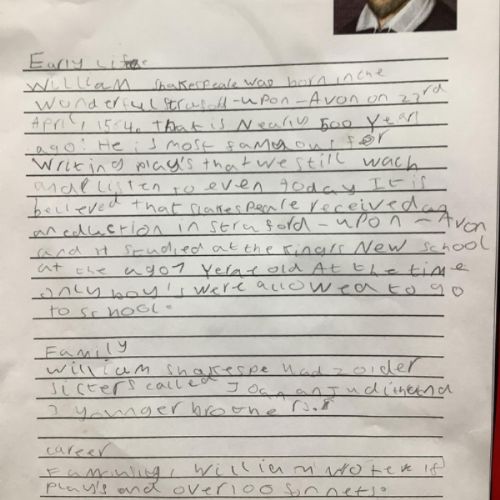 Early Life
William Shakespeare was born in the
wonderful Straford-upon-Avon on 23rd
April, 1564. that is Nearly 500 Years
ago! He is most famous for
writing play's that we still wach
and listen to even today It is
believed that Shakespeare received an
an eduction in Straford-upon-Avon
and studied at the King's New School
at the age 7 Years old At the time
only boy's were allowed to go
to school.
Family
William Shakespe had 2 older
sisters called Joan an Judith and
3 younger brothers.
career
William wrote
play's and over 100 sonnets.